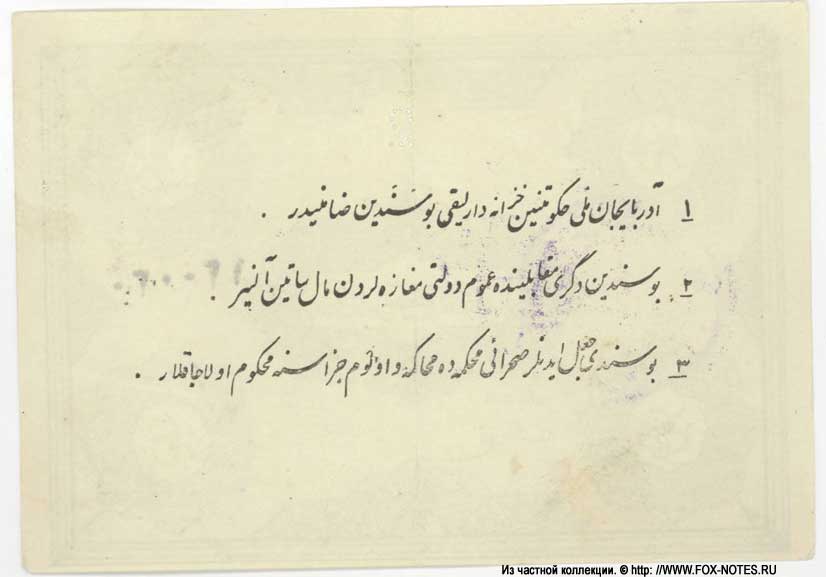 ۱ آذربایجان ملی حکومتنین خزانه داریلیقی بو سندین ضامنیدر .
۲ بو سندین دگری مقابلینده عموم دولتی مغازه لردن مال ساتین آلنیر .
۳ بو سندی جعل ایدنلر صحرائی محکمه ده محاکمه و اولوم جزاسنه محکوم اولاجاقلار .
Из частной коллекции. © http: //WWW.FOX-NOTES.RU